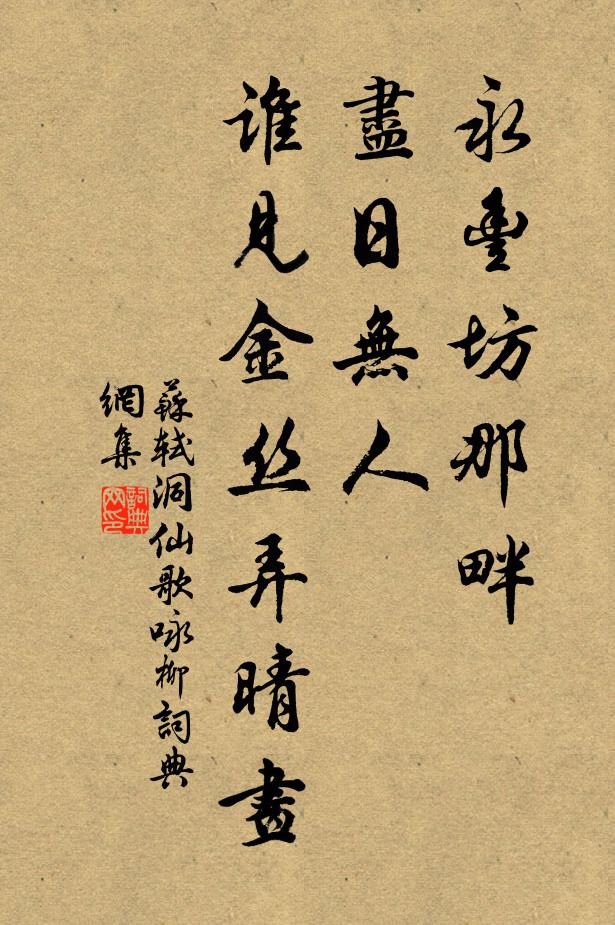 永豐坊那畔
盡日無人
誰見金丝弄晴晝
蘇軾洞仙歌咏柳詞典
網集
詞典網印